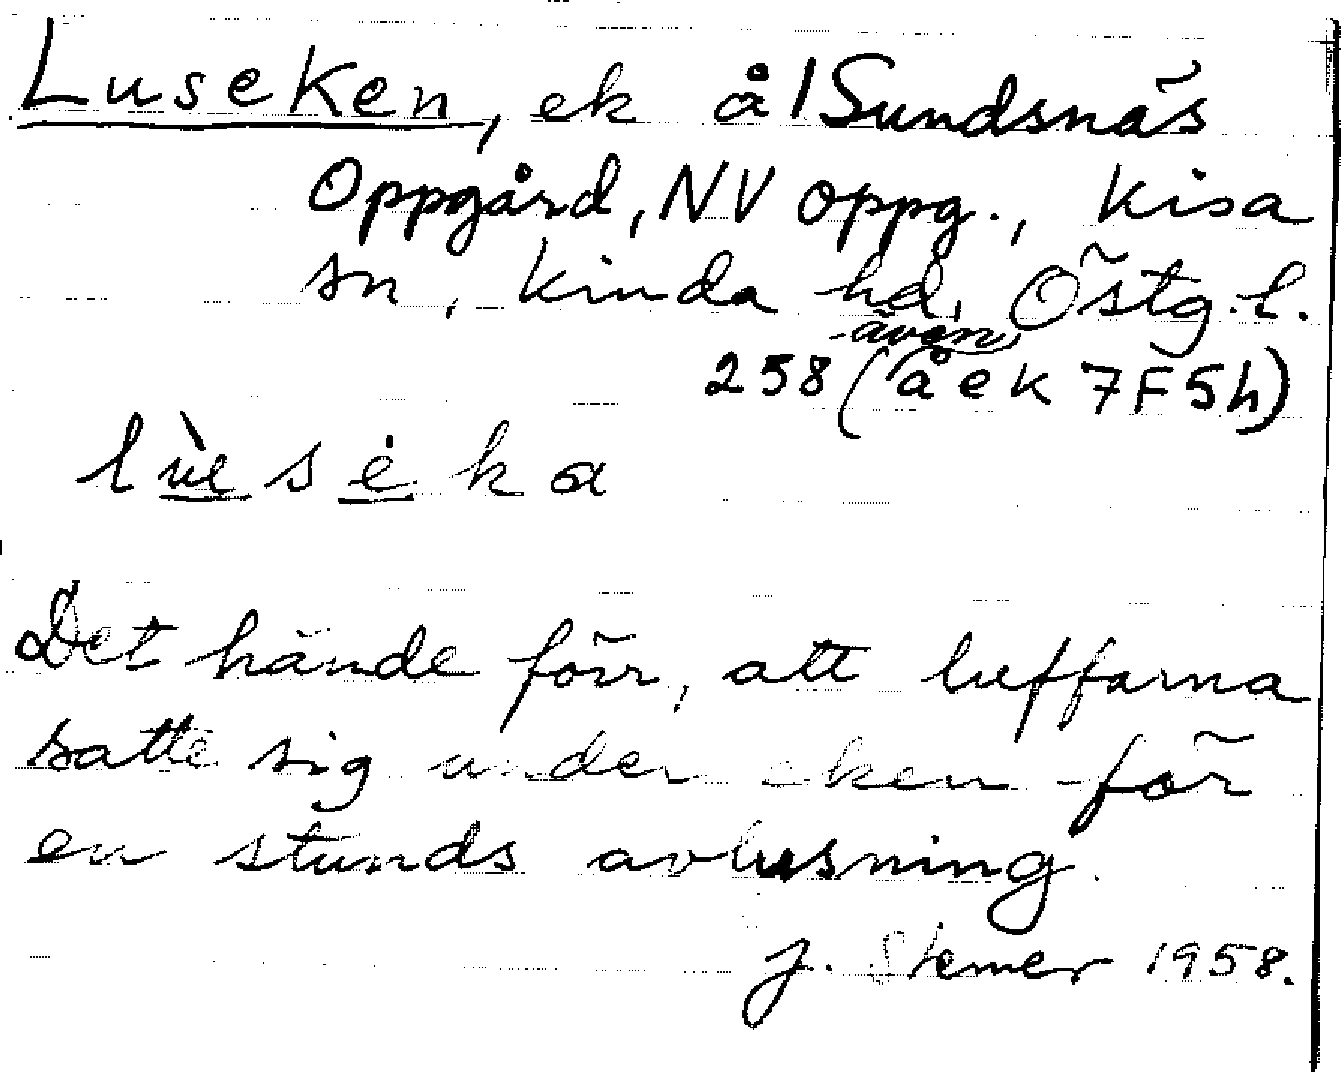 Luseken, ek å 1 Sundsnäs
Oppgård, NV oppg., Kisa
sn, Kinda hd, Östg.l.
även
258 (å ek 7F5h)
lùseka
Det hände förr, att luffarna
satte sig under eken för
en stunds avlusning.
J. Stemer 1958.